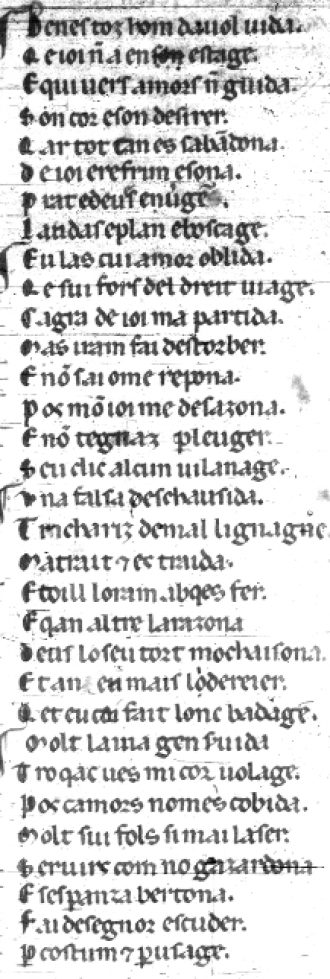 Ben es toz hom dauol uida.
Qe ioi nā en son estage.
E qui uers amors nō guida.
Son cor e son desirer.
Car tot can es sabādona.
De ioi e refrim e sona.
prat e deus e
Landas e plan e boscage.
Eu las cui amor oblida.
Qe sui fors del dreit uiage.
Cagra de ioi ma partida.
Mas iram fai destorber.
E nō sai o me repona.
pos mō ioi me desazona.
E nō tegnaz pleuger
Seu dic alcun uilanage.
Vna falsa deschausida.
Trichariz de mal lignagne
Matrait ⁊ es traida.
E coill lo ram abqes fer.
E qan altre larazona
Deus lo seu tort mochaisona.
E tan en mais lo derreier.
Qe eu fait lonc badage.
Molt lauia gen suida
Tro qac ues mi cor uolage.
pos camors nomes cobida.
Molt sui fols si mai la ser.
Seruirs com no gazardona
E sesperanza bertona.
Fai de segnor escuder.
ꝑ costum ⁊ ꝑ usage.